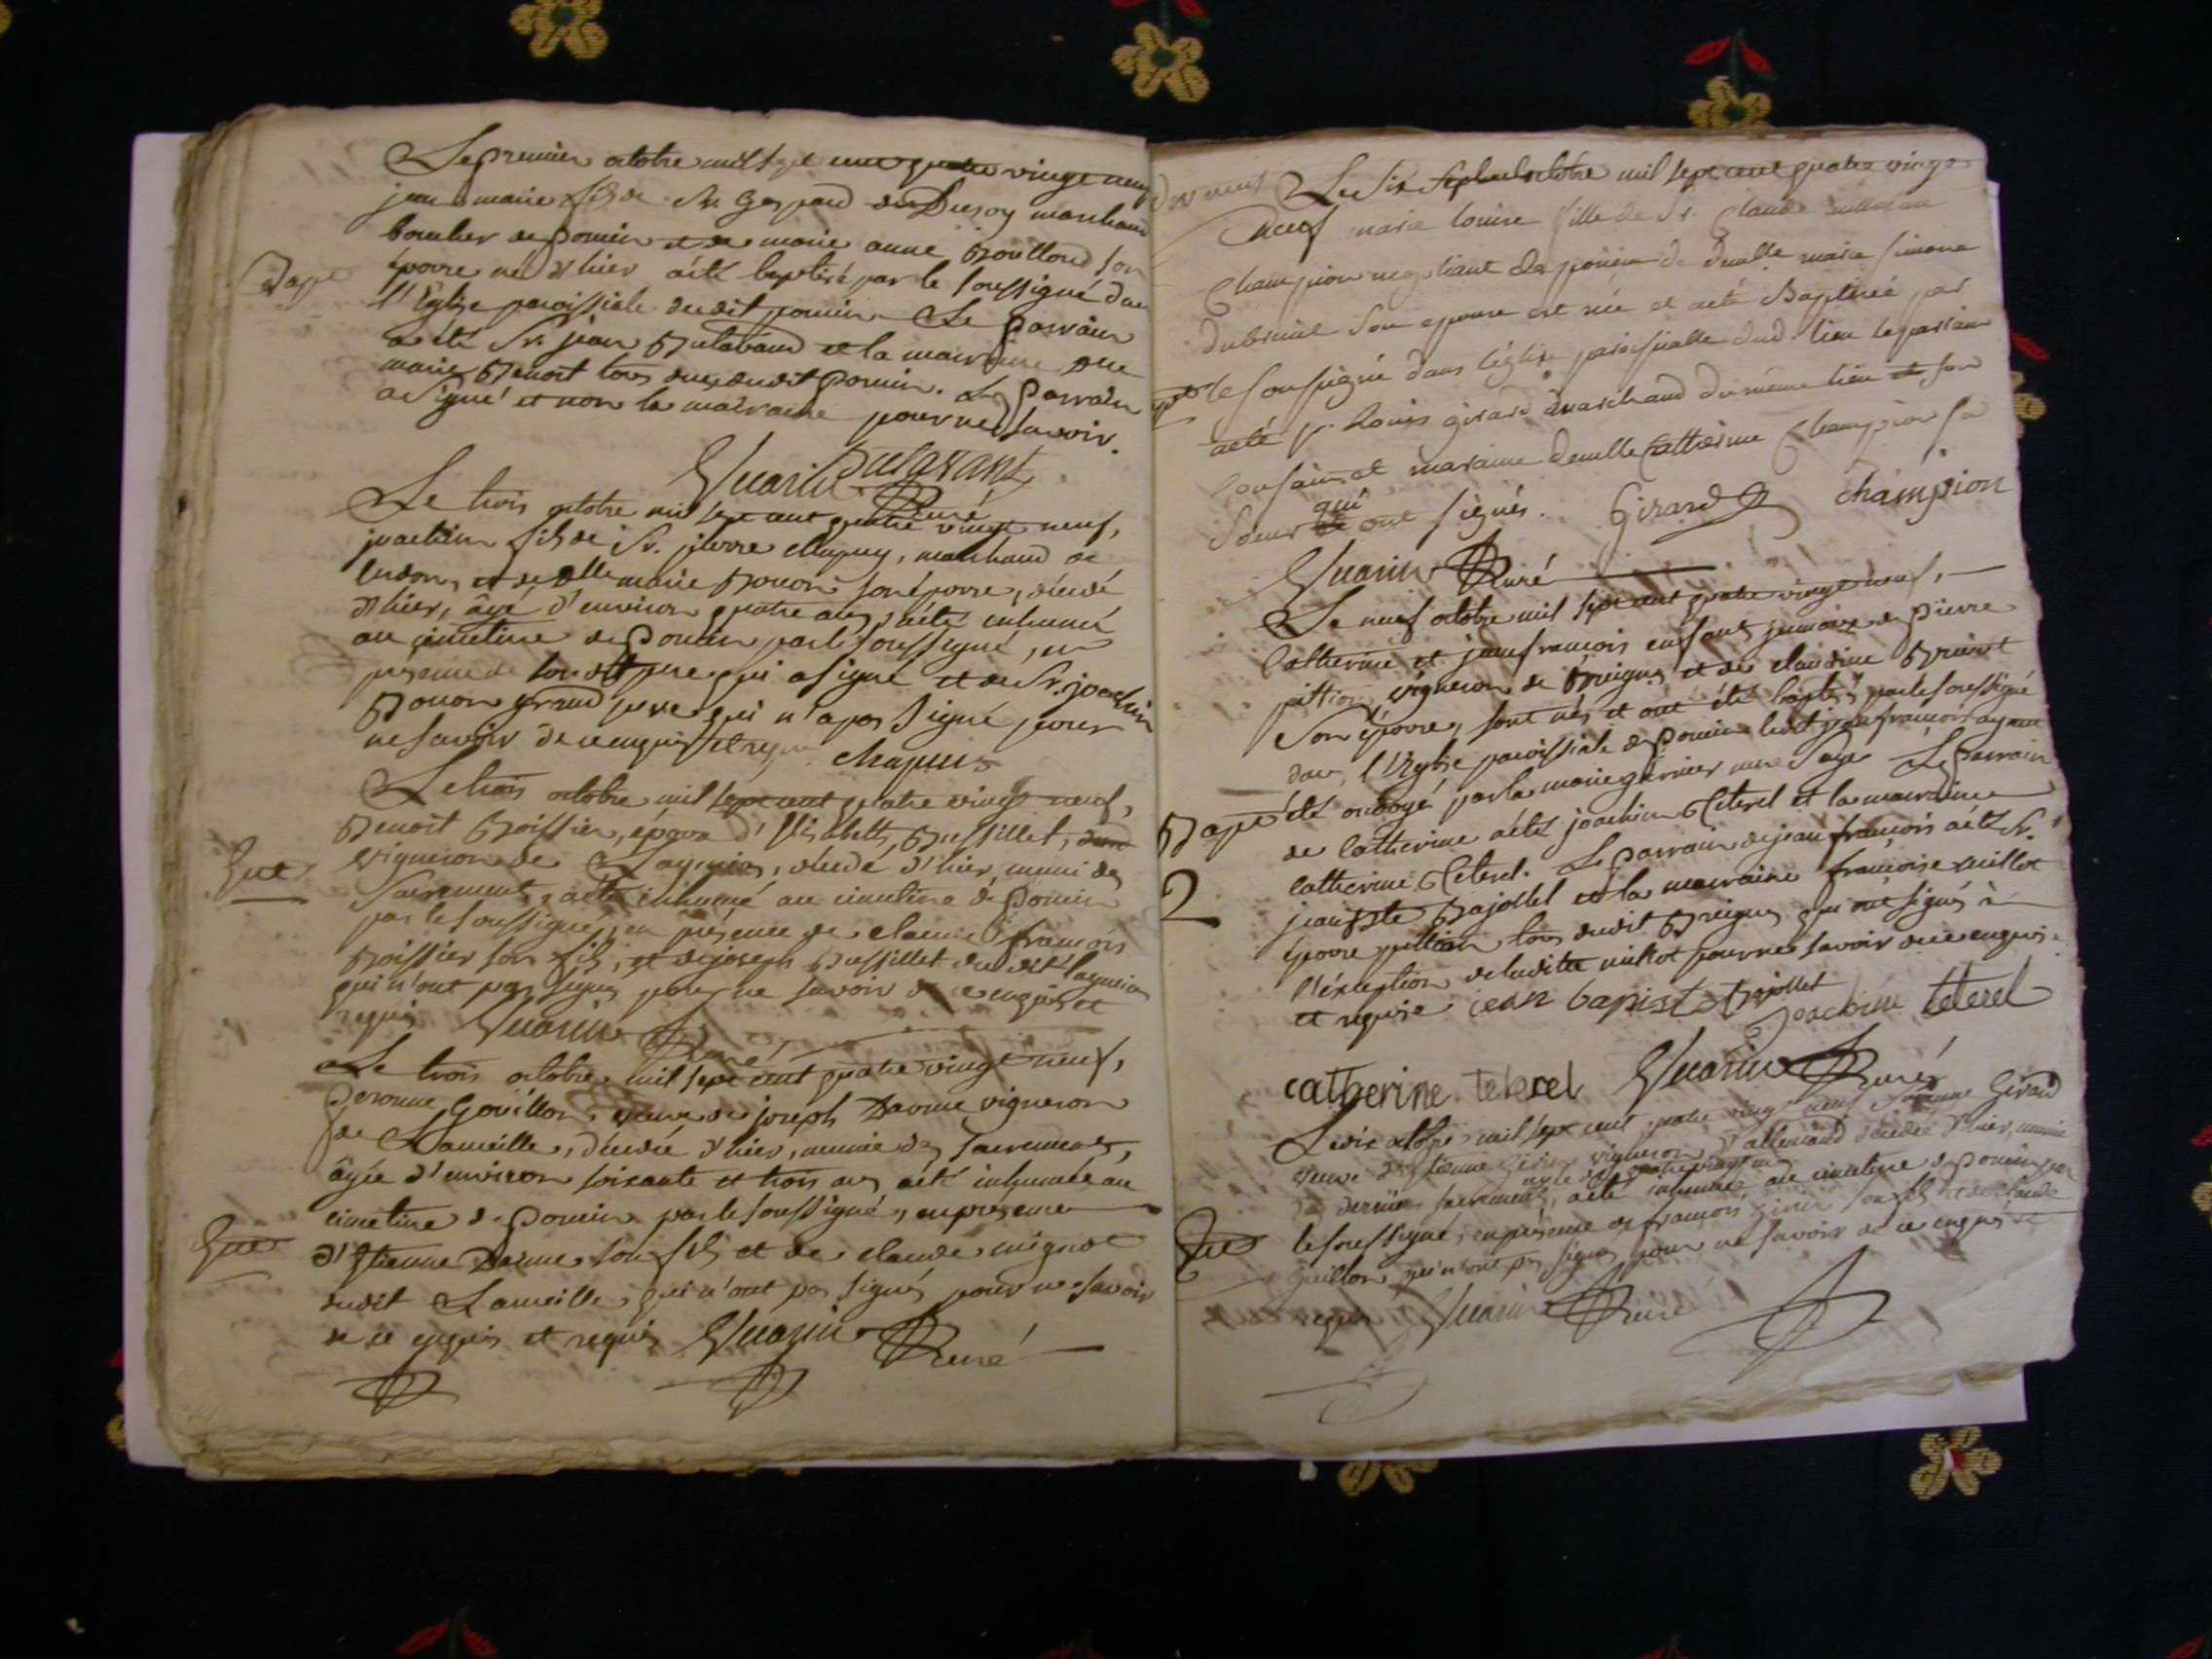 Le premier octobre mil sept cent quatre vingt neuf
jean marie fils de Sr. Gaspard marchand
boucher de Poncin et de marie anne Bouillond son
épouse né d'hier a été baptisé par le soussigné dans
Bapt
l'Eglise paroissiale dudit poncin. Le Parrain
a été Sr. jean et la marraine
marie Benoit tous deux dudit Poncin. Le Parrain
a signé et non la marraine pour ne savoir.
Guarin Curé
Le trois octobre mil sept cent quatre vingt neuf,
joachim fils de Sr. pierre marchand de
et de Dlle marie Bouon son épouse, décédé
d'hier, âgé d'environ quatre ans, a été inhumé
au cimetiere de Poncin par le soussigné, en
presence de sondit pere qui a signé et de Sr. joachim
Bouon grand pere qui n'a pas signé pour
ne savoir de ce enquis et requis chapuis
Le trois octobre mil sept cent quatre vingt neuf,
Benoit Boissier, époux d'Elisabeth Bussillet,
vigneron de décédé d'hier, muni des
Sacrements, a été inhumé au cimetiere de Poncin
par le soussigné, en présence de claude françois
Boissier son fils, et de joseph Bussillet dudit
qui n'ont pas signés pour ne savoir de ce enquis et
requis Guarin Curé
Le trois octobre mil sept cent quatre vingt neuf,
Gouillon, veuve de joseph vigneron
de Lameille, décédée d'hier, munie des sacrements,
âgée d'environ soixante et trois ans a été inhumée au
cimetiere de Poncin par le soussigné, en présence
d'Etienne son fils et de claude mignot
dudit Lameille, qui n'ont pas signés pour ne savoir
de ce enquis et requis Guarin Curé
Le six octobre mil sept cent quatre vingt
neuf marie louise fille de Sr. Claude
Champion negotiant de poncin & demlle marie simone
dubreuil son epouse est née et a eté Baptisée par
le soussigné dans l'église paroissialle dud. lieu le parain
a eté Sr Louis girard marchand du même lieu et son
cousin et maraine demlle Catherine Champion sa
soeur qui ont signés. Girard champion
Guarin Curé
Le neuf octobre mil sept cent quatre vingt neuf,
Catherine et jean françois enfants jumeaux de Pierre
pittion, vigneron de Breignes et de claudine
son épouse, sont nés et ont été baptisés par le soussigné
dans l'Eglise paroissiale de Poncin ledit jean françois ayant
Bapt
été ondoyé par la marie mere sage. Le Parrain
de Catherine a été joachim Teterel et la marraine
2
Catherine Teterel. Le parrain de jean françois a été Sr.
jean Bte Bajollet et la marraine françoise millot
épouse pittion tous dudit Breignes qui ont signés à
l'exception de ladite millot pour ne savoir de ce enquise
et requise jean Bapist Bajollet
Joachim teterel
catherine teterel Guarin Curé
Le dix octobre mil sept cent quatre vingt neuf Girard
veuve d'Etienne vigneron d'allemand décédée d'hier, munie
des derniers sacrements, a été inhumée au cimetiere de Poncin par
le soussigné, en présence de françois son fils et de claude
Guillon qui n'ont pas signés pour ne savoir de ce enquis et
requis Guarin Curé